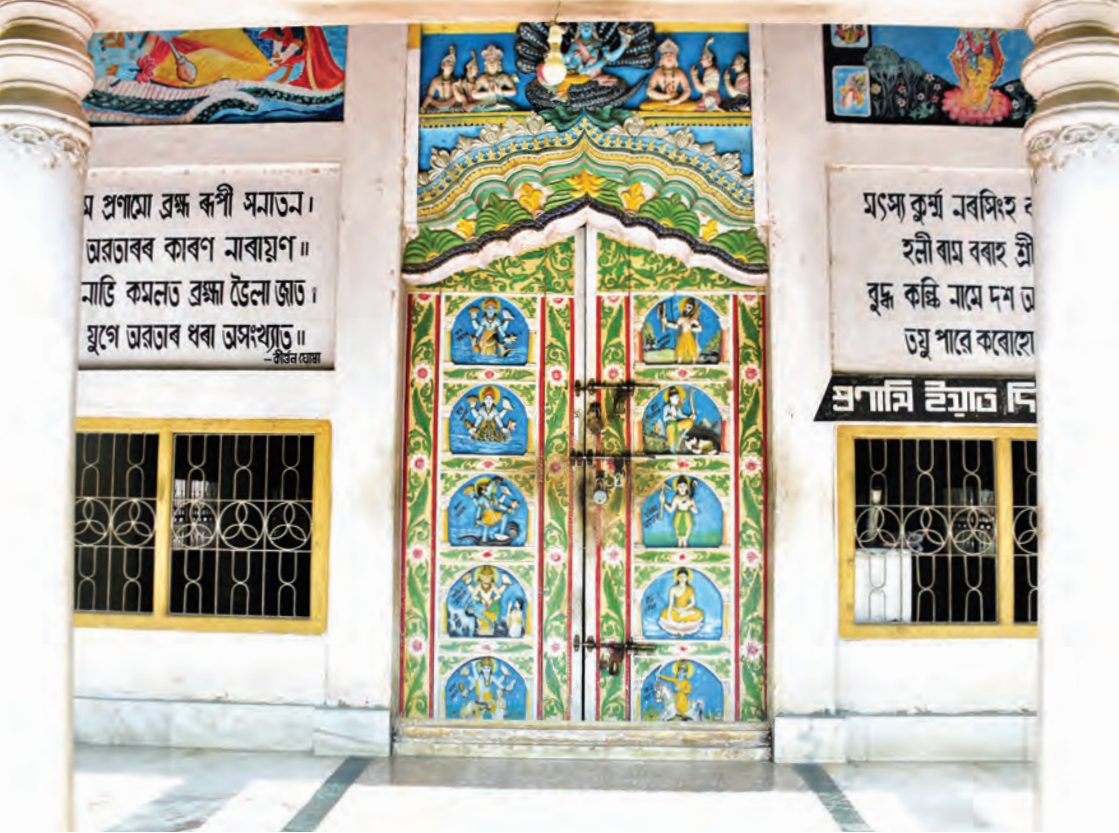 প্ৰণামো ব্ৰহ্ম ৰূপী সনাতন।
অৱতাৰৰ কাৰণ নাৰায়ণ॥
নাভি কমলত ব্ৰহ্মা ভৈলা জাত।
যুগে অৱতাৰ ধৰা অসংখ্যাত॥
– কীৰ্ত্তন ঘোষা
মৎস্য কুৰ্ম্ম নৰসিংহ
হলী ৰাম বৰাহ শ্ৰী
বুদ্ধ কল্কি নামে দশ
তযু পাৰে কৰোহো
প্ৰণামি ইয়াত